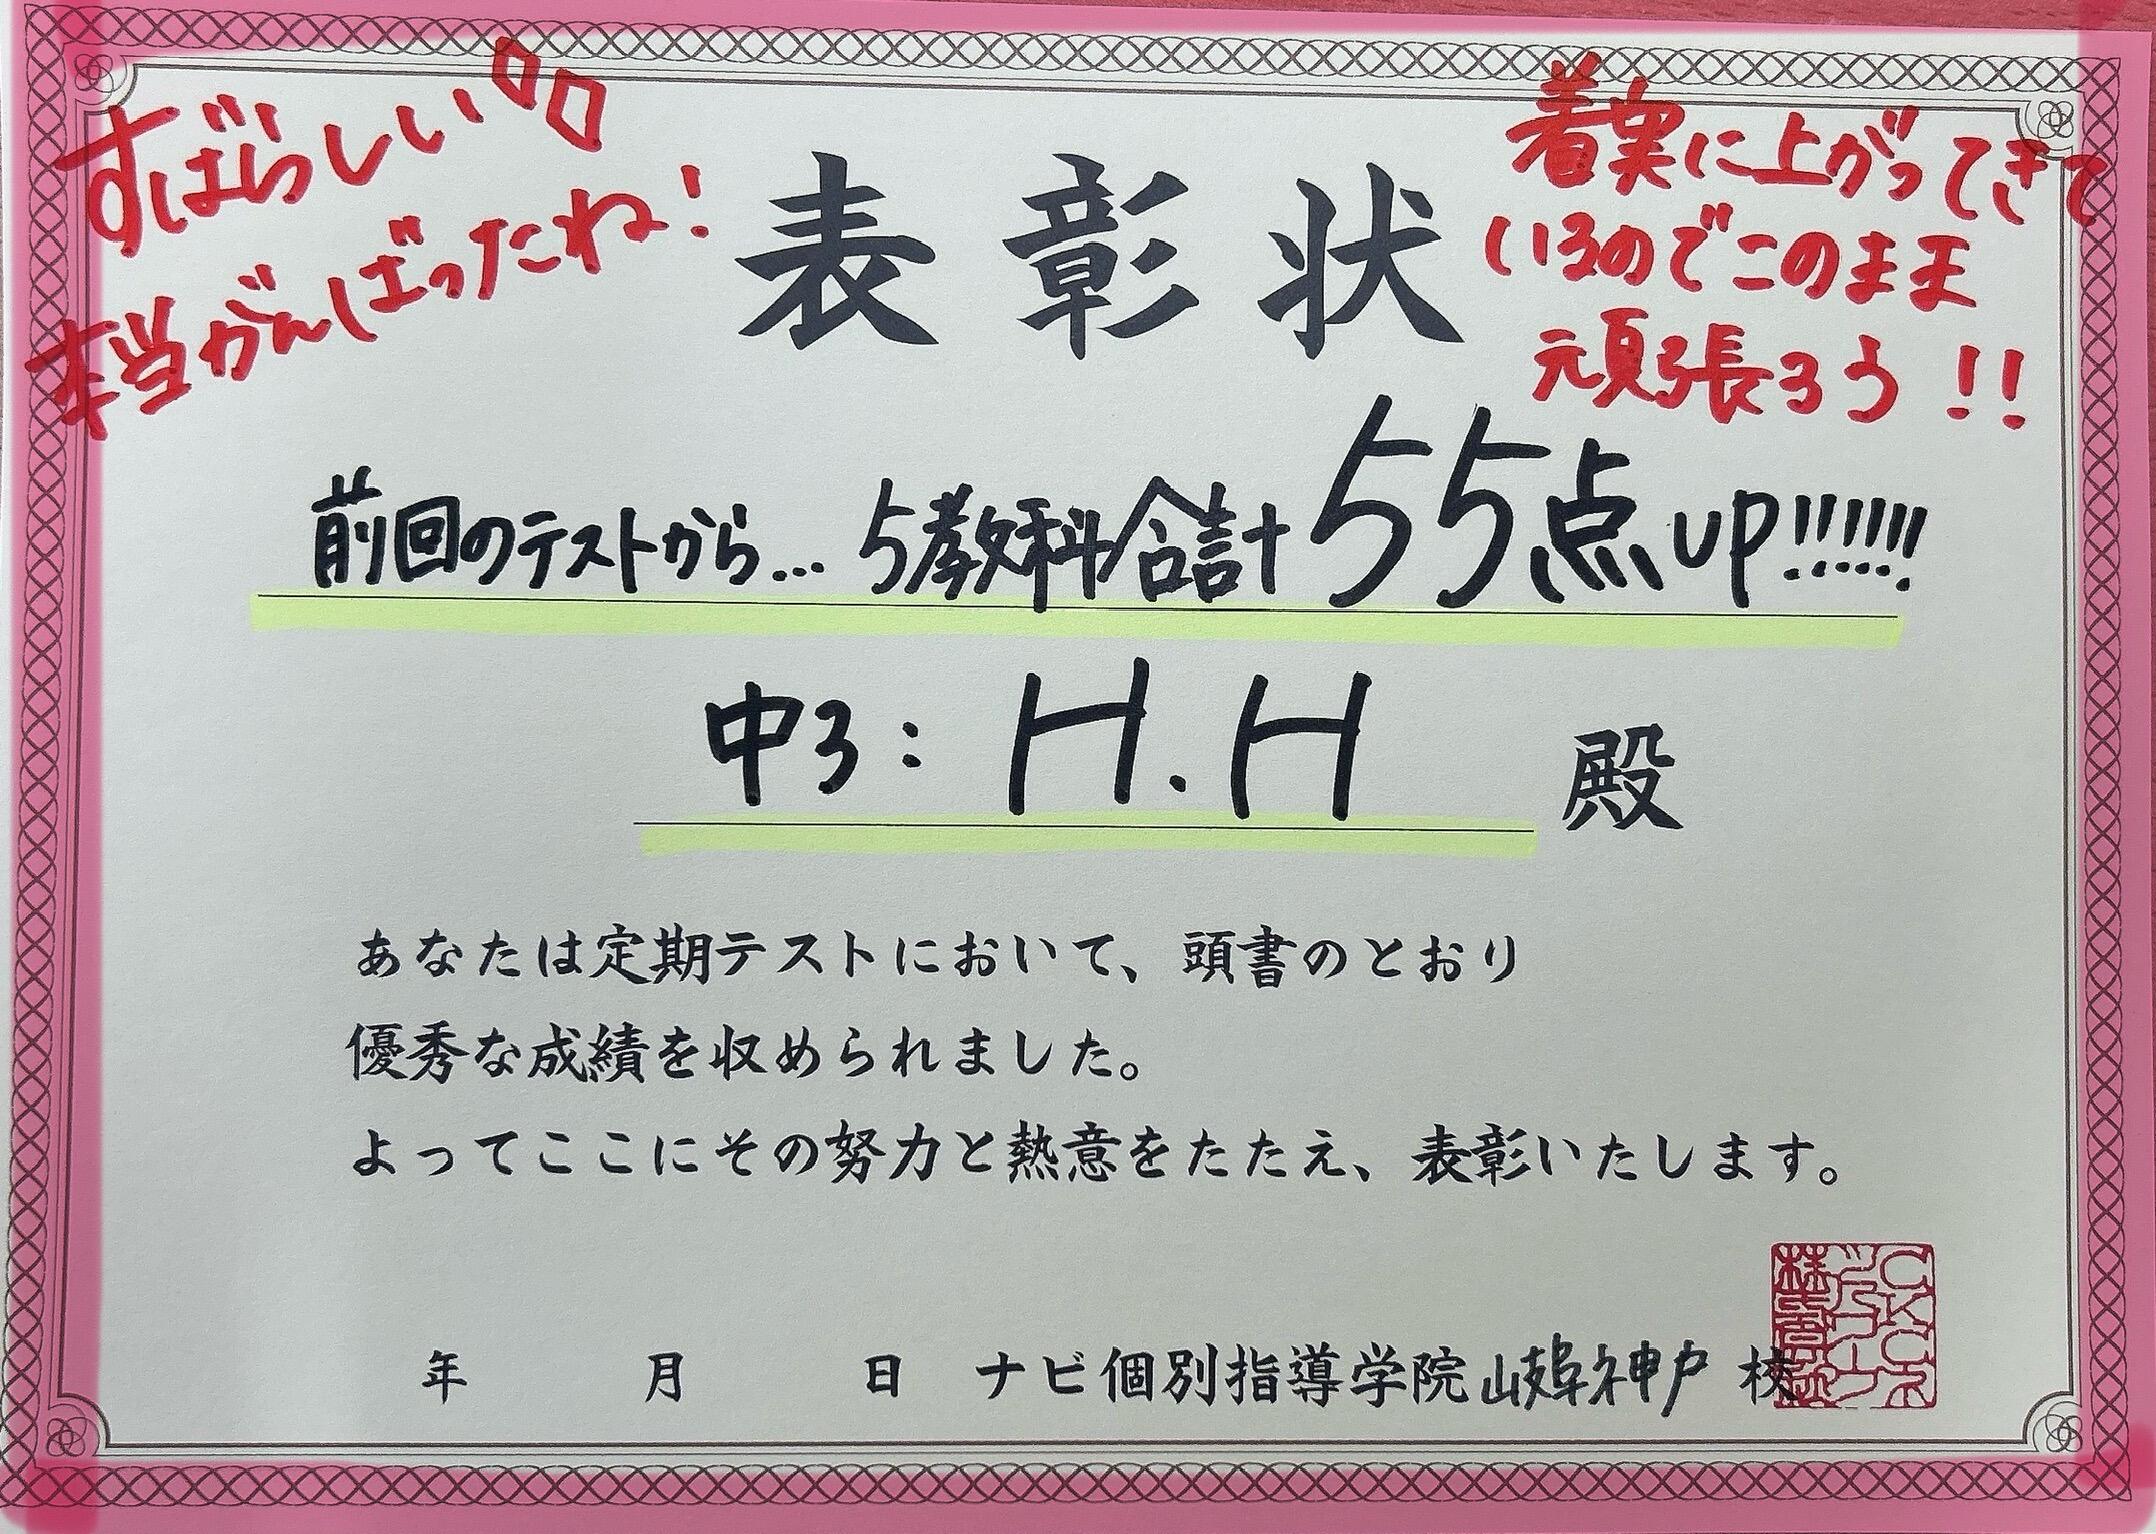 すばらしい!!
本当がんばったね!
表彰状
着実に上がってきて
いるのでこのまま
頑張ろう!!
前回のテストから...5教科合計55点up!!!!!!
中3:H.H 殿
あなたは定期テストにおいて、頭書のとおり
優秀な成績を収められました。
よってここにその努力と熱意をたたえ、表彰いたします。
年 月 日 ナビ個別指導学院岐阜神戸 校